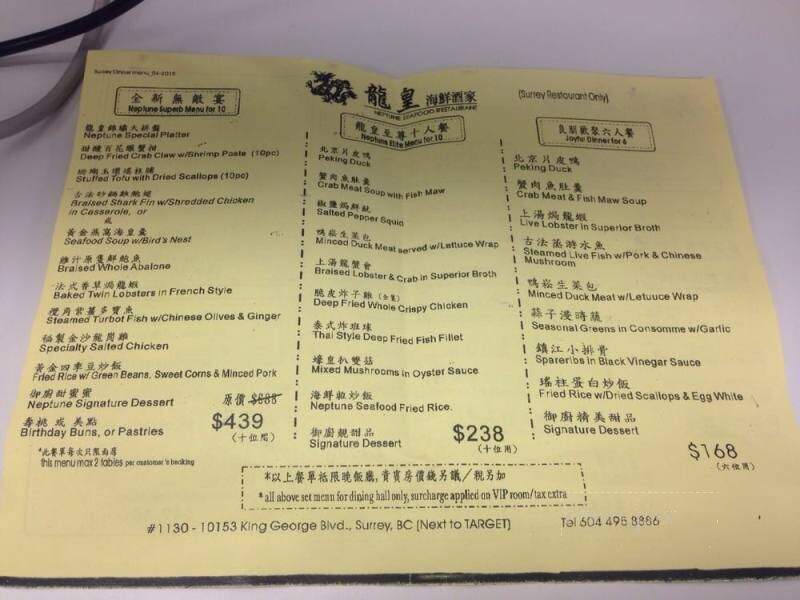 Surrey Dinner menu_04-2015
龍皇 海鮮酒家
NEPTUNE SEAFOOD RESTAURANT
(Surrey Restaurant Only)
全新無敵宴
Neptune Superb Menu for 10
龍皇錦繡大拼盤
Neptune Special Platter
甜醋百花釀蟹柑
Deep Fried Crab Claw w/Shrimp Paste (10pc)
珊瑚玉環瑤柱脯
Stuffed Tofu with Dried Scallops (10pc)
古法砂鍋雞舭翅
Braised Shark Fin w/Shredded Chicken
in Casserole, or
或
黃金燕窩海皇羹
Seafood Soup w/Bird's Nest
雞汁原隻鮮鮑魚
Braised Whole Abalone
法式香草焗龍蝦
Baked Twin Lobsters in French Style
欖角紫薑多寶魚
Steamed Turbot Fish w/Chinese Olives & Ginger
福製金沙龍崗雞
Specialty Salted Chicken
黃金四季豆炒飯
Fried Rice w/Green Beans, Sweet Corns & Minced Pork
御廚甜蜜蜜 原價 $688
Neptune Signature Dessert
壽桃 或 美點 $439
Birthday Buns, or Pastries (十位用)
*此餐單每次只限兩席
this menu max 2 tables per customer's booking
龍皇至尊十人餐
Neptune Elite Menu for 10
北京片皮鴨
Peking Duck
蟹肉魚肚羹
Crab Meat Soup with Fish Maw
椒鹽焗鮮魷
Salted Pepper Squid
鴨崧生菜包
Minced Duck Meat served w/Lettuce Wrap
上湯龍蟹會
Braised Lobster & Crab in Superior Broth
脆皮炸子雞 (全隻)
Deep Fried Whole Crispy Chicken
泰式炸班球
Thai Style Deep Fried Fish Fillet
蠔皇扒雙菇
Mixed Mushrooms in Oyster Sauce
海鮮粒炒飯
Neptune Seafood Fried Rice.
御廚靚甜品 $238
Signature Dessert (十位用)
良朋歡聚六人餐
Joyful Dinner for 6
北京片皮鴨
Peking Duck
蟹肉魚肚羹
Crab Meat & Fish Maw Soup
上湯焗龍蝦
Live Lobster in Superior Broth
古法蒸游水魚
Steamed Live Fish w/Pork & Chinese
Mushroom
鴨崧生菜包
Minced Duck Meat w/Letuuce Wrap
蒜子浸時蔬
Seasonal Greens in Consomme w/Garlic
鎮江小排骨
Spareribs in Black Vinegar Sauce
瑤柱蛋白炒飯
Fried Rice w/Dried Scallops & Egg White
御廚精美甜品
Signature Dessert
$168
(六位用)
*以上餐單祗限晚飯廳,貴賓房價錢另議/稅另加
*all above set menu for dining hall only, surcharge applied on VIP room/tax extra
#1130 - 10153 King George Blvd., Surrey, BC (Next to TARGET) Tel 604 495 8886